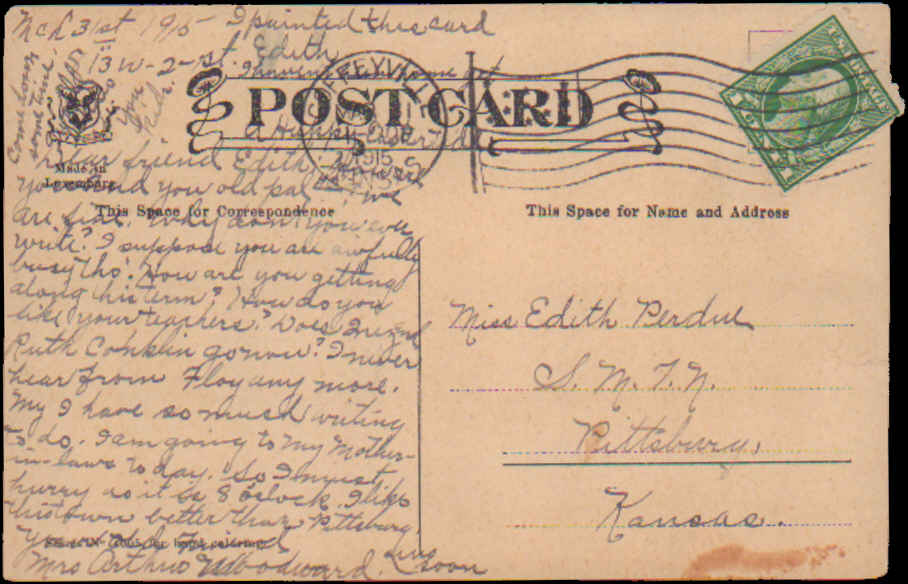 Mch 31st 1915
I painted this card
13 W-2-st. Edith
I haven't
home yet
Come down
some time.
POST CARD
COFFEYVILLE
1915
Made in
Luxemburg
A Happy Easter to
your friend Edith
you old pal. we
This Space for Correspondence
This Space for Name and Address
are fine. Why don't you ever
write? I suppose you are awfully
busy tho'. How are you getting
along this term? How do you
like your teachers? Does Inez and
Ruth Conklin go now? I never
hear from Floy any more.
My I have so much writing
to do. I am going to my Mother-
in-laws today. So I must
hurry as it is 8 o'clock. I like
this town better than Pittsburg.
Your Friend
Mrs Arthur Woodward.
Ans soon
Miss Edith Perdue
S. M. T. N.
Pittsburg,
Kansas.